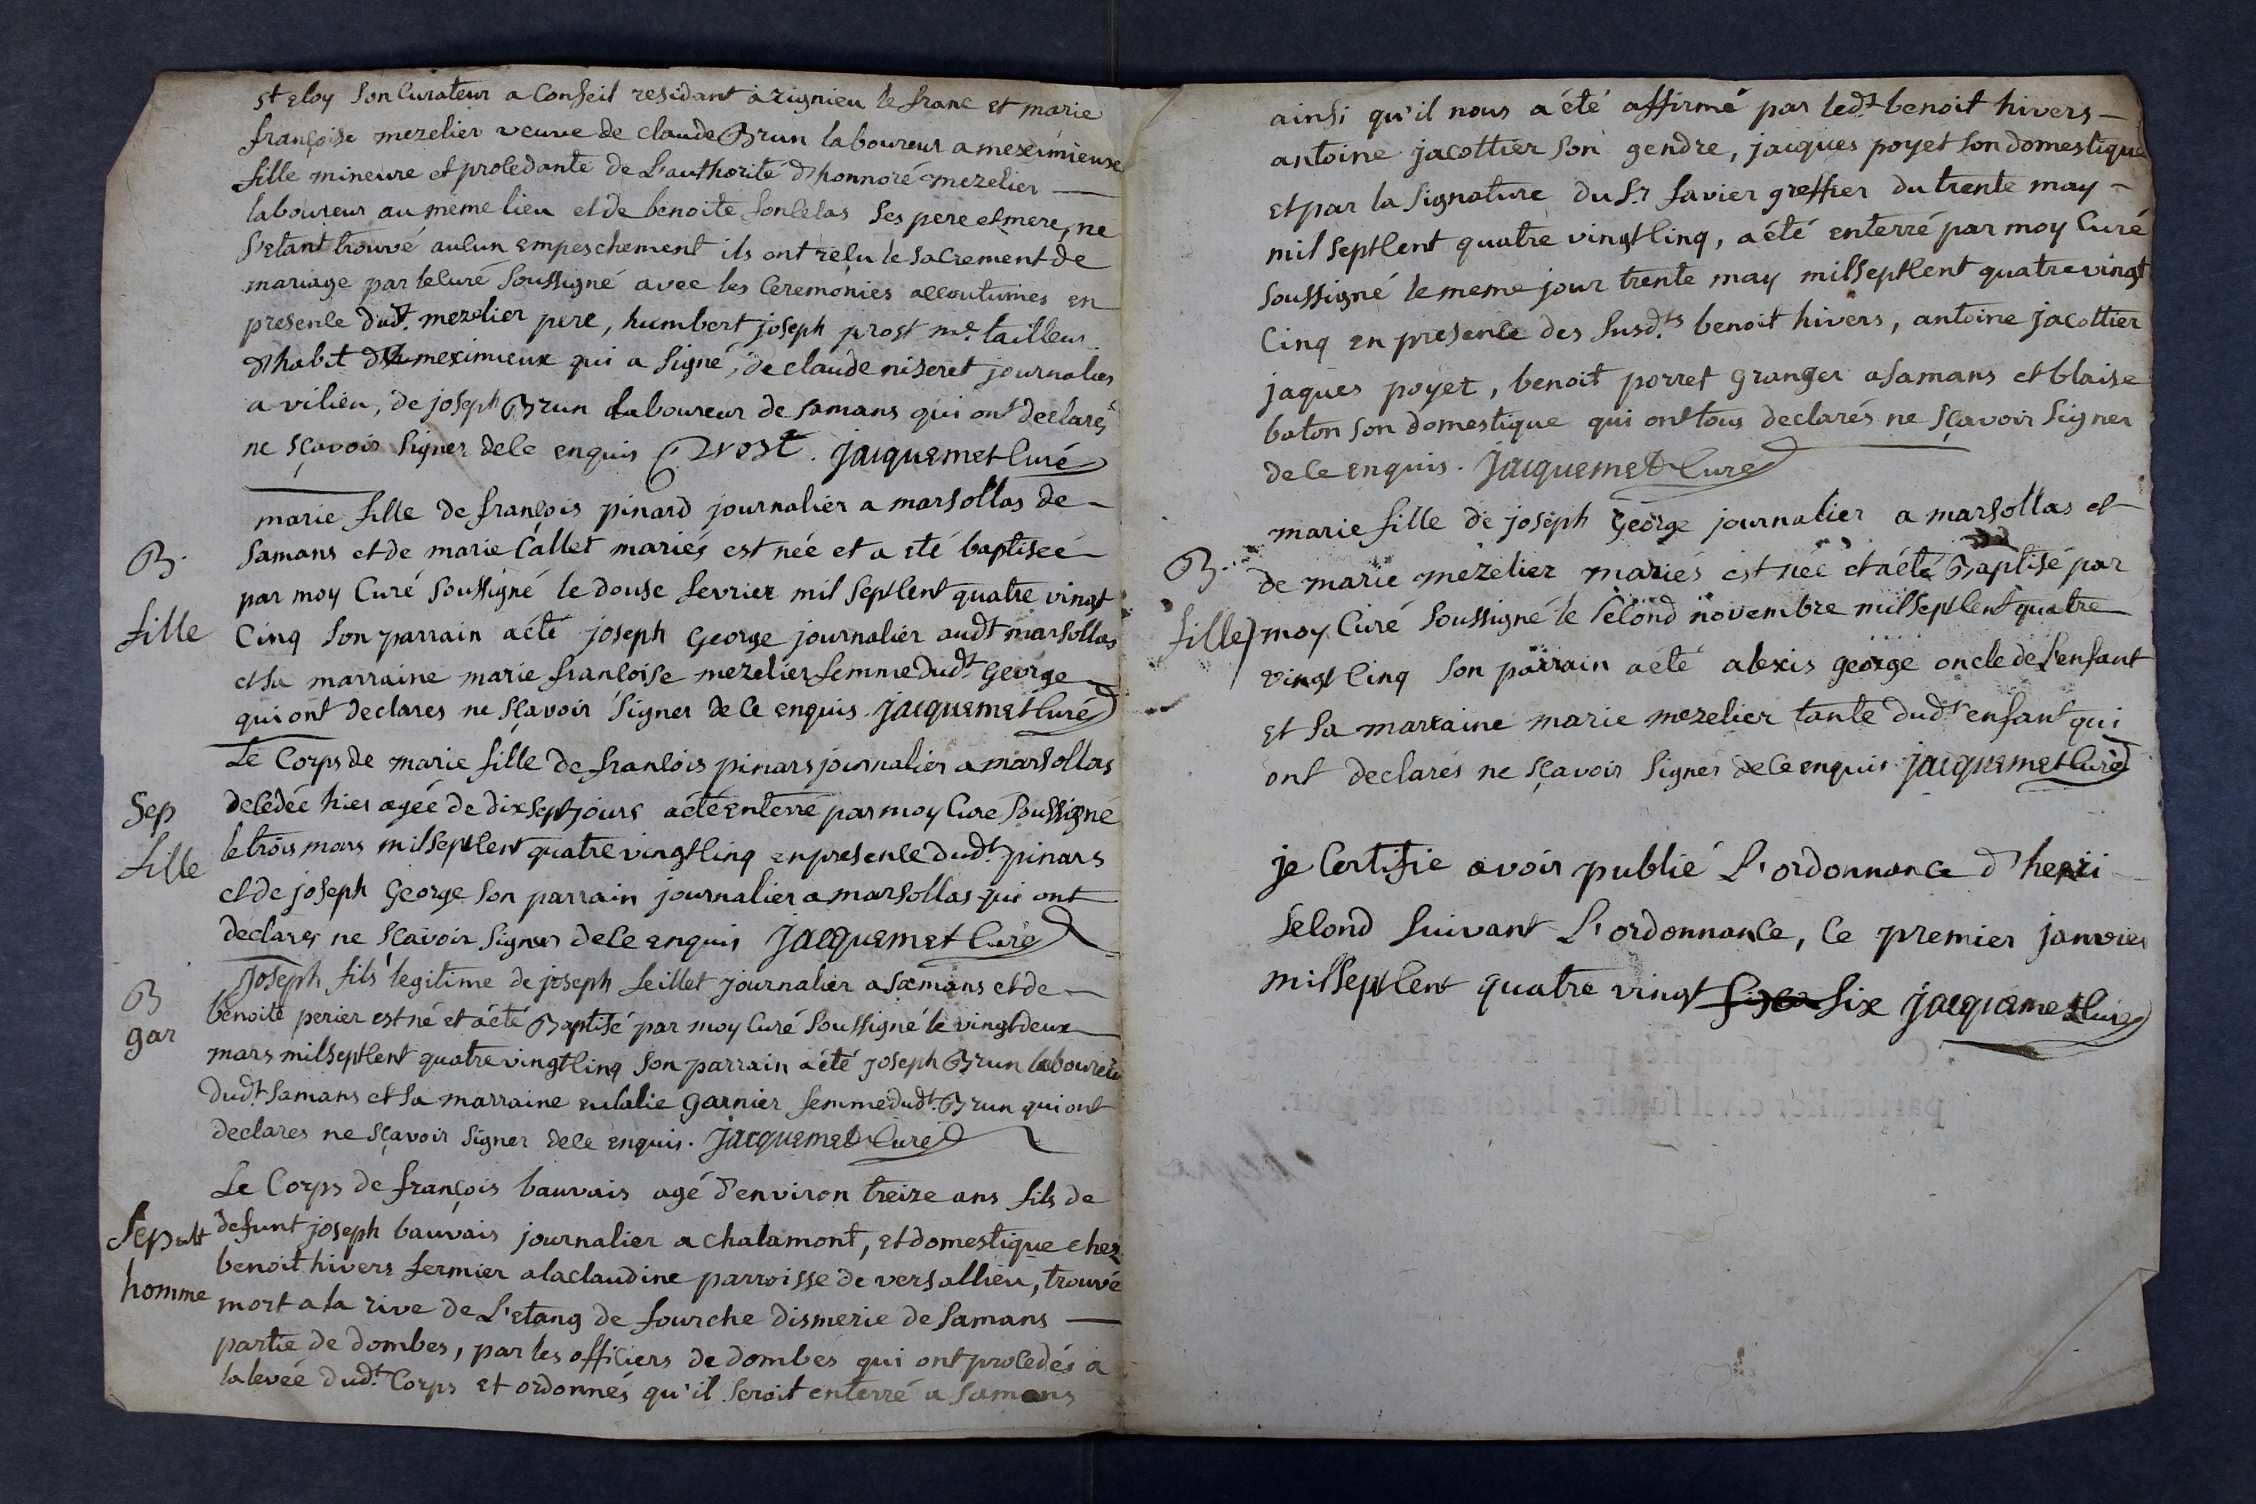 st eloy son curateur a conseil residant a rignieu le franc et marie
françoise mezelier veuve de claude Brun laboureur a meximieuse
fille mineure et procedante de l'authorité d'honnoré mezelier —
laboureur au meme lieu et de benoite ses pere et mere, ne
s'etant trouvé aucun empeschement ils ont reçu le sacrement de
mariage par le curé soussigné avec les ceremonies accoutumées en
presence dudt. mezelier pere, humbert joseph prost me. tailleur
d'habit meximieux qui a signé, de claude niseret journalier
a vilieu, de joseph Brun laboureur de samans qui ont declarés
ne sçavoir signer de ce enquis Prost. jacquemet curé
marie fille de françois pinard journalier a marsollas de —
B.
samans et de marie callet mariés est née et a eté baptiseé —
par moy curé soussigné le douse fevrier mil sept cent quatre vingt
fille
cinq son parrain a été joseph george journalier audt marsollas
et sa marraine marie francoise mezelier femme dudt george —
qui ont declares ne sçavoir signer de ce enquis. jacquemet curé
Le corps de marie fille de francois pinars journalier a marsollas
Sep
decedée hier ageé de dix sept jours a été enterré par moy curé soussigné
fille
le trois mars mil sept cent quatre vingt cinq en presence dudt. pinars
et de joseph george son parrain journalier a marsollas qui ont
declares ne sçavoir signer de ce enquis jacquemet curé
joseph fils legitime de joseph feillet journalier a samans et de —
B
benoite perier est né et a été Baptisé par moy curé soussigné le vingt deux
gar
mars mil sept cent quatre vingt cinq son parrain a été joseph Brun laboureur
dudt. samans et sa marraine eulalie garnier femme dudt. Brun qui ont
declares ne sçavoir signer de ce enquis. jacquemet curé
Le corps de françois bauvais agé d'environ treize ans fils de
Sepult
defunt joseph bauvais journalier a chalamont, et domestique chez
benoit hivers fermier a la claudine parroisse de versallieu, trouvé
homme
mort a la rive de l'etang de fourche dismerie de samans —
partie de dombes, par les officiers de dombes qui ont procedés a
la levée dudt. corps et ordonnés qu'il seroit enterré a samans
ainsi qu'il nous a été affirmé par ledt. benoit hivers —
antoine jacottier son gendre, jacques poyet son domestique
et par la signature du sr. favier greffier du trente may —
mil sept cent quatre vingt cinq, a été enterré par moy curé
soussigné le meme jour trente may mil sept cent quatre vingt
cinq en presence des susdts. benoit hivers, antoine jacottier
jaques poyet, benoit porret granger a samans et blaise
baton son domestique qui ont tous declarés ne sçavoir signer
de ce enquis. jacquemet curé
marie fille de joseph george journalier a marsollas et
B.
de marie mezelier mariés est née et a été Baptisé par
fille
moy curé soussigné le second novembre mil sept cent quatre
vingt cinq son parrain a été alexis george oncle de l'enfant
et sa marraine marie mezelier tante dudt. enfant qui
ont declarés ne sçavoir signer de ce enquis jacquemet curé
je certifie avoir publié l'ordonnance d'henri
second suivant l'ordonnance, ce premier janvier
mil sept cent quatre vingt six jacquemet curé